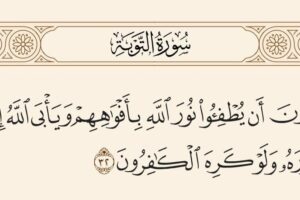 سُورَةُ التَّوْبَةِ
ونَ أَن يُطْفِـُٔوا۟ نُورَ ٱللَّهِ بِأَفْوَٰهِهِمْ وَيَأْبَى ٱللَّهُ إِ
رَهُۥ وَلَوْ كَرِهَ ٱلْكَـٰفِرُونَ ٣٢